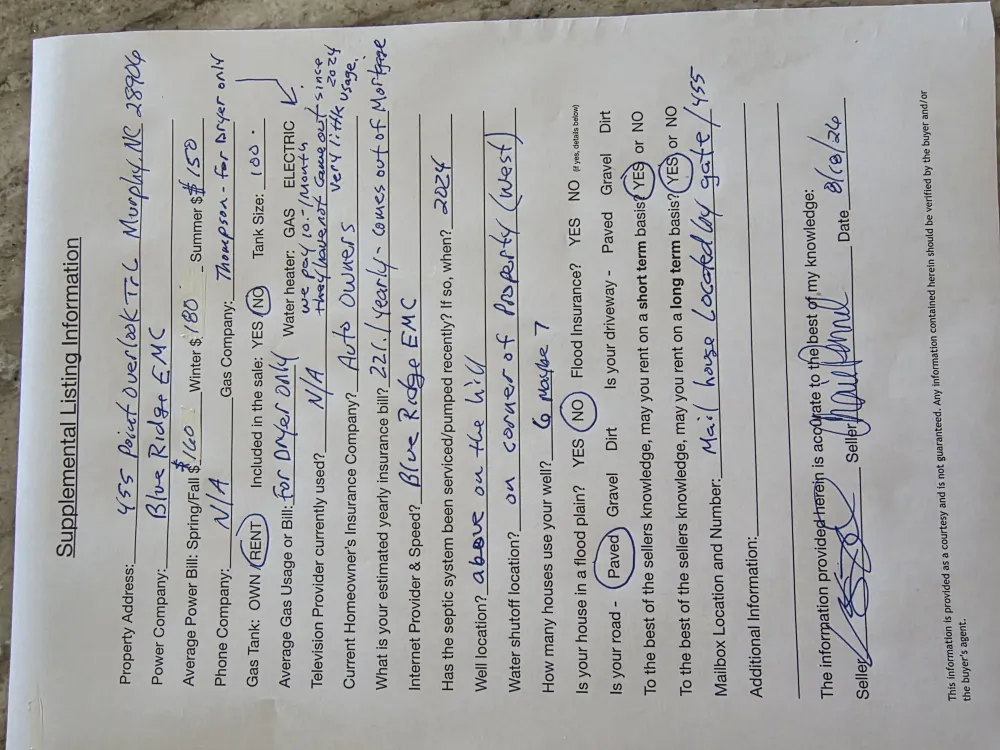 Supplemental Listing Information
Property Address: 455 Point Overlook Trl Murphy, NC 28906
Power Company: Blue Ridge EMC
Average Power Bill: Spring/Fall $ $160 Winter $ 180 Summer $ $150
Phone Company: N/A Gas Company: Thompson - For Dryer only
Gas Tank: OWN RENT Included in the sale: YES NO Tank Size: 100.
Average Gas Usage or Bill: for Dryer only Water heater: GAS ELECTRIC
we pay 10.-/Month
they have not came out since 2024
very little usage.
Television Provider currently used? N/A
Current Homeowner's Insurance Company? Auto Owners
What is your estimated yearly insurance bill? 221./yearly - comes out of Mortgage
Internet Provider & Speed? Blue Ridge EMC
Has the septic system been serviced/pumped recently? If so, when? 2024
Well location? above on the hill
Water shutoff location? on corner of Property (West)
How many houses use your well? 6 maybe 7
Is your house in a flood plain? YES NO Flood Insurance? YES NO (if yes, details below)
Is your road - Paved Gravel Dirt Is your driveway - Paved Gravel Dirt
To the best of the sellers knowledge, may you rent on a short term basis? YES or NO
To the best of the sellers knowledge, may you rent on a long term basis? YES or NO
Mailbox Location and Number: Mail house Located by gate / 455
Additional Information:
The information provided herein is accurate to the best of my knowledge:
Seller Seller Date
This information is provided as a courtesy and is not guaranteed. Any information contained herein should be verified by the buyer and/or
the buyer's agent.